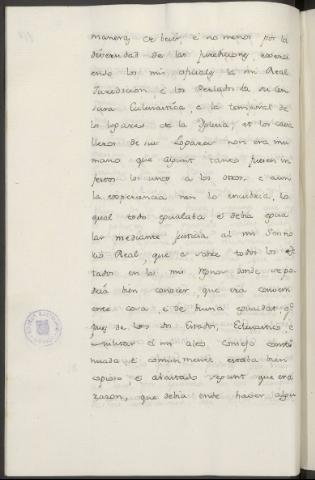 manera, es decir, e no menos por la
diversidad de las jurediciones, exerci
endo los mis oficiales la mi Real
Juredicion, e los Perlados la su cen
sura Eclesiastica, e la temporal de
los logares de la Iglesia, et los cava
lleros de sus Logares non era mu
mano que algunt tanto fuesen in
festos los unos a los otros, e aun
la experiencia non lo encubria, lo
qual todo igualaba e debia igua
lar mediante justicia al mi
Real, que a sobre todos los es
tados en los mis donde se po
deria bien conocer, que era conven
iente cosa, e de buena egualdad que
de los dos Estados, Eclesiastico, e
militar el mi alto Consejo conti
nuada e comunmente estaba bien
copioso, e abastado segunt que era
razon, que debia ende haver algu